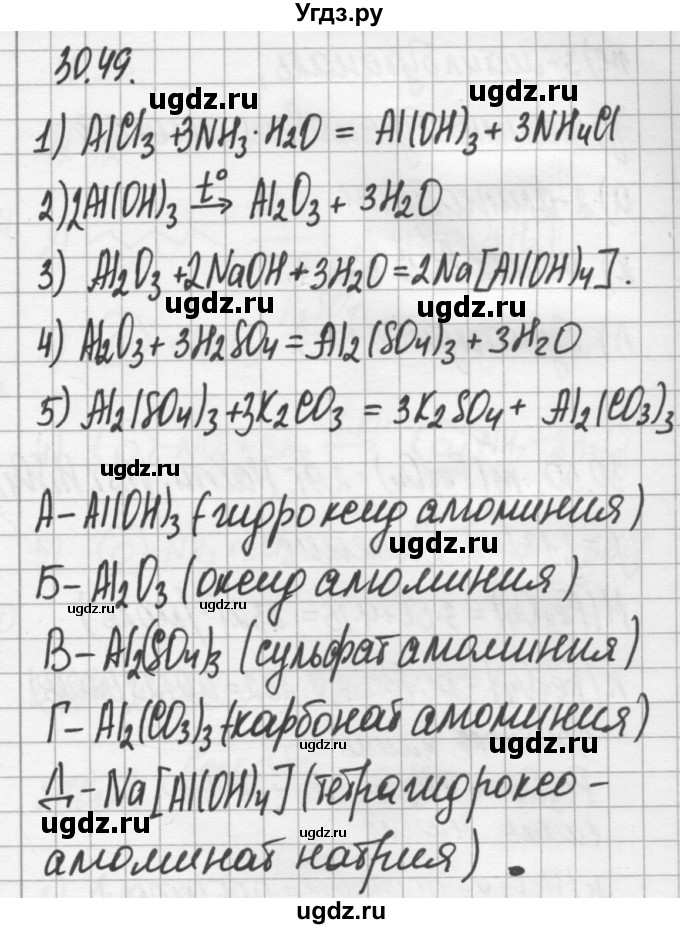 Угдз.ру
30.49.
ugdz.ru
1) AlCl3 + 3NH3 · H2O = Al(OH)3 + 3NH4Cl
ugdz.ru
2) 2Al(OH)3 t° → Al2O3 + 3H2O
3) Al2O3 + 2NaOH + 3H2O = 2Na[Al(OH)4].
ugdz.ru ugdz.ru
4) Al2O3 + 3H2SO4 = Al2(SO4)3 + 3H2O
5) Al2(SO4)3 + 3K2CO3 = 3K2SO4 + Al2(CO3)3
ugdz.ru
А – Al(OH)3 (гидроксид алюминия)
ugdz.ru
Б – Al2O3 (оксид алюминия)
ugdz.ru ugdz.ru
В – Al2(SO4)3 (сульфат алюминия)
Г – Al2(CO3)3 (карбонат алюминия)
ugdz.ru ugdz.ru
Д – Na[Al(OH)4] (тетрагидроксо-
ugdz.ru ugdz.ru
алюминат натрия).
ugdz.ru